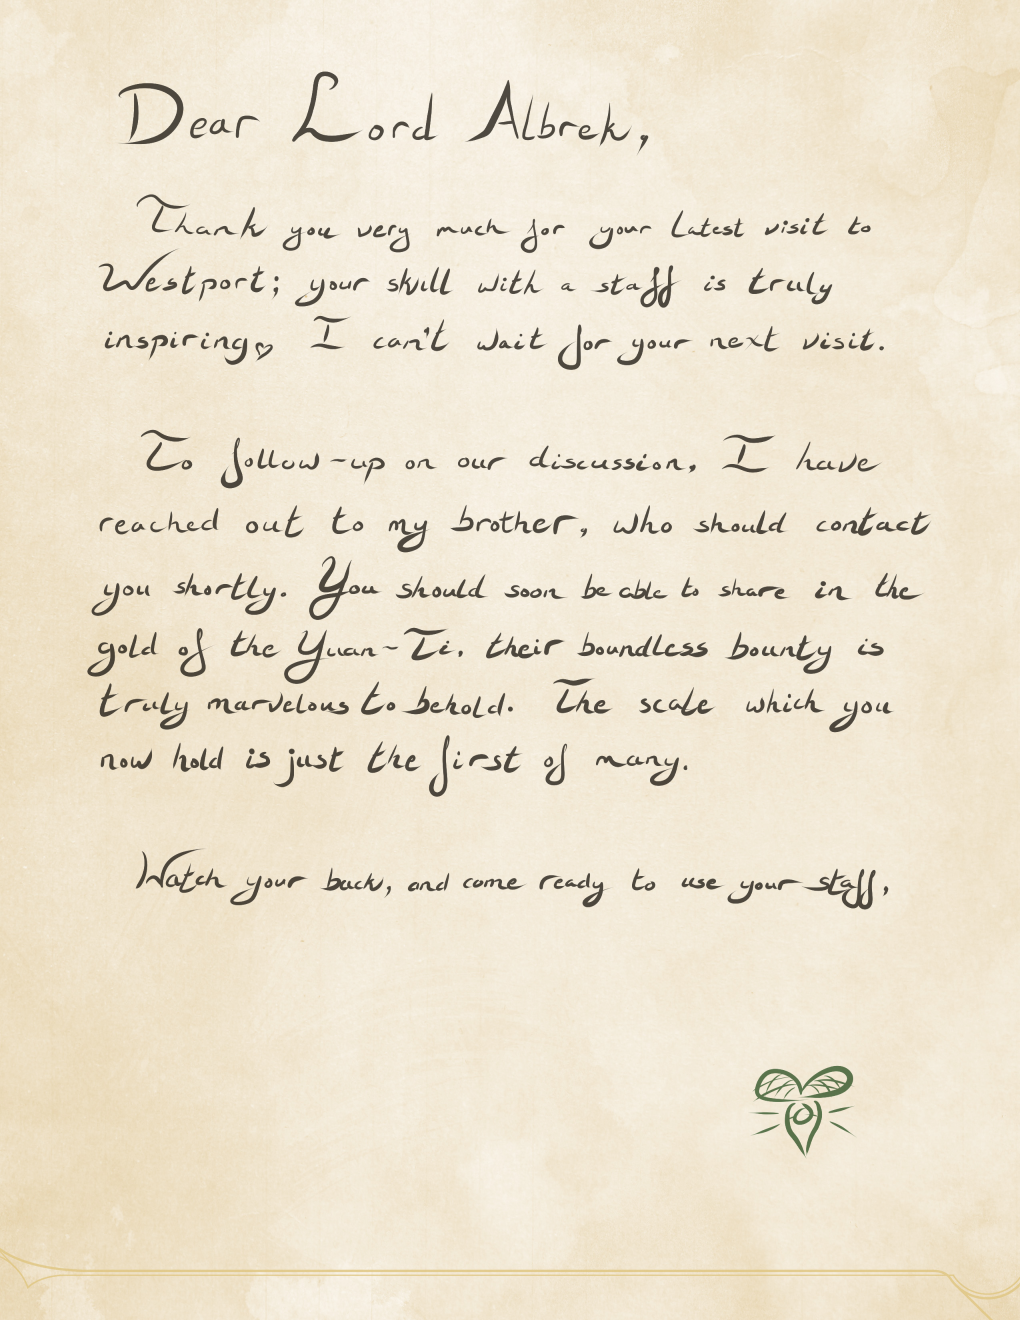 Dear Lord Albrek,
Thank you very much for your latest visit to
Westport; your skill with a staff is truly
inspiring♡ I can't wait for your next visit.
To follow-up on our discussion, I have
reached out to my brother, who should contact
you shortly. You should soon be able to share in the
gold of the Yuan-Ti, their boundless bounty is
truly marvelous to behold. The scale which you
now hold is just the first of many.
Watch your back, and come ready to use your staff,